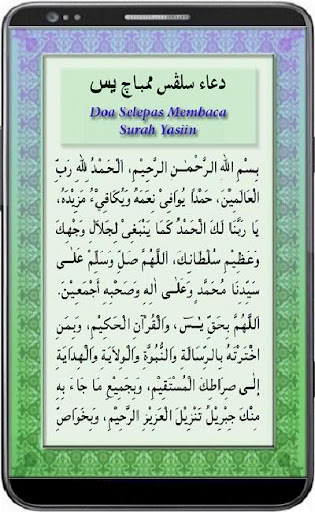 دعاء سلڤس ممباچ يس
Doa Selepas Membaca
Surah Yasiin
بِسْمِ اللهِ الرَّحْمٰنِ الرَّحِيْمِ، اَلْحَمْدُ لِلّٰهِ رَبِّ
الْعَالَمِيْنَ، حَمْدًا يُوَافِىْ نِعَمَهُ وَيُكَافِىْءُ مَزِيْدَهُ،
يَا رَبَّنَا لَكَ الْحَمْدُ كَمَا يَنْبَغِىْ لِجَلَالِ وَجْهِكَ
وَعَظِيْمِ سُلْطَانِكَ، اَللّٰهُمَّ صَلِّ وَسَلِّمْ عَلَىٰ
سَيِّدِنَا مُحَمَّدٍ وَعَلَىٰ اٰلِهِ وَصَحْبِهِ أَجْمَعِيْنَ.
اَللّٰهُمَّ بِحَقِّ يٰسٓ، وَالْقُرْآنِ الْحَكِيْمِ، وَبِمَنِ
اخْتَرْتَهُ بِالرِّسَالَةِ وَالنُّبُوَّةِ وَالْوِلَايَةِ وَالْهِدَايَةِ
إِلَىٰ صِرَاطِكَ الْمُسْتَقِيْمِ، وَبِجَمِيْعِ مَا جَاءَ بِهِ
مِنْكَ جِبْرِيْلُ تَنْزِيْلَ الْعَزِيْزِ الرَّحِيْمِ، وَبِخَوَاصِّ